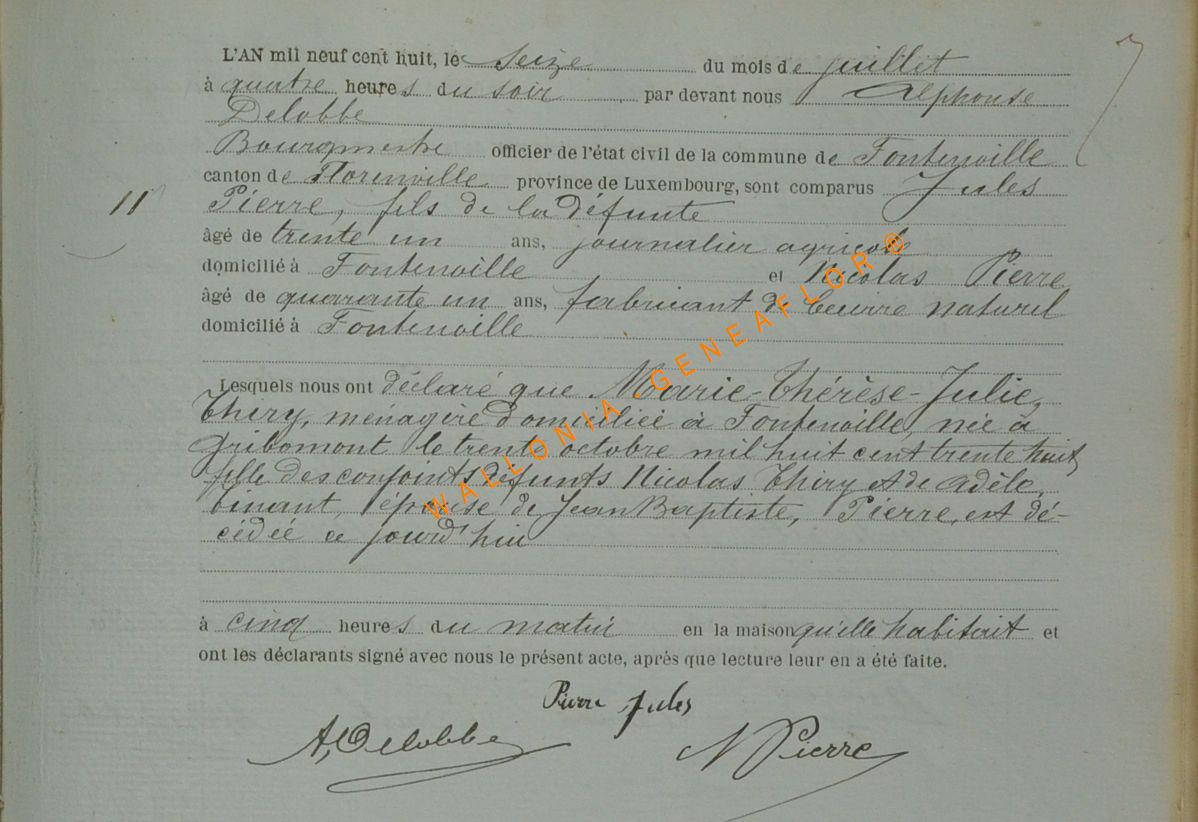 L'AN mil neuf cent huit, le seize du mois de juillet 7
à quatre heures du soir par devant nous Alphonse
Delobbe
Bourgmestre officier de l'état civil de la commune de Fontenoille
canton de Florenville province de Luxembourg, sont comparus Jules
11 Pierre, fils de la défunte
âgé de trente un ans, journalier agricole
domicilié à Fontenoille et Nicolas Pierre
âgé de quarante un ans, fabricant de beurre naturel
domicilié à Fontenoille
Lesquels nous ont déclaré que Marie-Thérèse-Julie,
Thiry, ménagère domiciliée à Fontenoille, née à
Gribomont le trente octobre mil huit cent trente huit,
fille des conjoints défunts Nicolas Thiry et de Adèle
Tinant, épouse de Jean Baptiste, Pierre, est dé-
cédée ce jourd'hui
à cinq heures du matin en la maison qu'elle habitait et
ont les déclarants signé avec nous le présent acte, après que lecture leur en a été faite.
Pierre Jules
A, Delobbe N Pierre
WALLONIA GENEAFLOR®